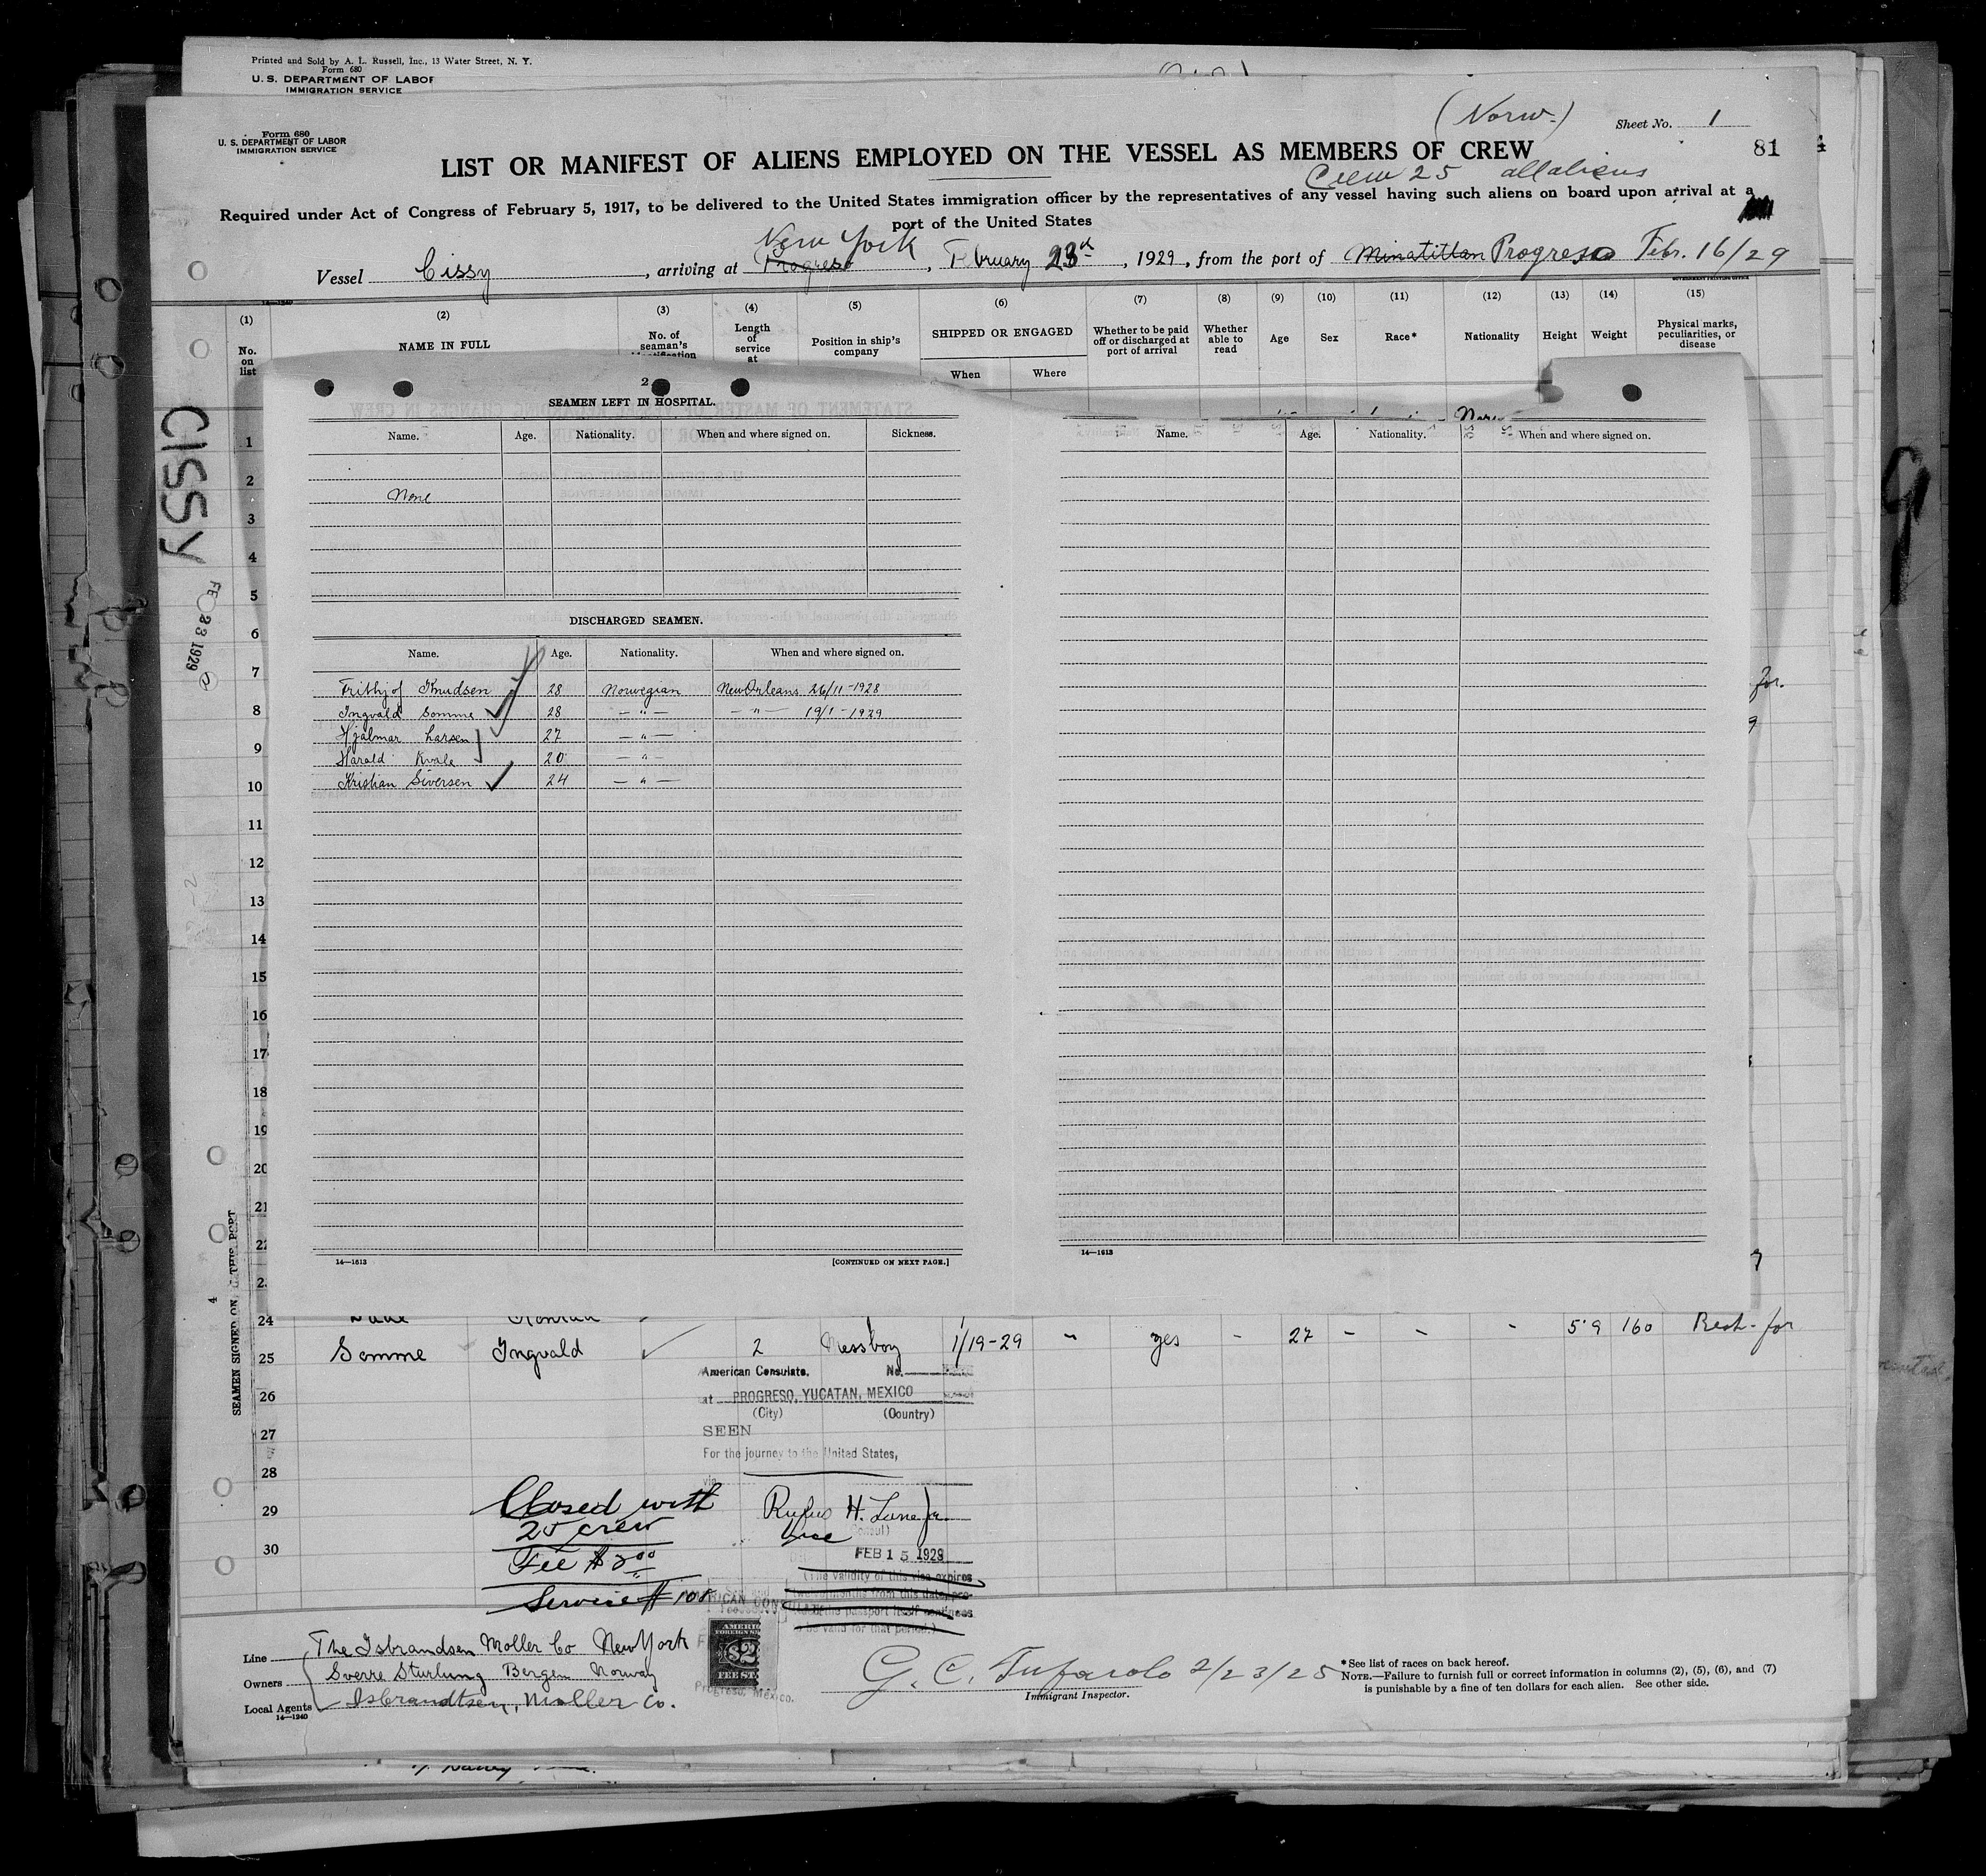 Printed and Sold by A. L. Russell, Inc., 13 Water Street, N. Y.
Form 680
U. S. DEPARTMENT OF LABOR
IMMIGRATION SERVICE
(Norw.)
Sheet No. 1
Form 680
U. S. DEPARTMENT OF LABOR
IMMIGRATION SERVICE
LIST OR MANIFEST OF ALIENS EMPLOYED ON THE VESSEL AS MEMBERS OF CREW
81
Crew 25 all aliens
Required under Act of Congress of February 5, 1917, to be delivered to the United States immigration officer by the representatives of any vessel having such aliens on board upon arrival at a
port of the United States
New York
Vessel Cissy, arriving at Progreso, February 23d, 1929, from the port of Minatitlan Progreso Febr. 16/29
(1) (2) (3) (4) (5) (6) (7) (8) (9) (10) (11) (12) (13) (14) (15)
No. on list
NAME IN FULL
No. of seaman's
Length of service at
Position in ship's company
SHIPPED OR ENGAGED
When Where
Whether to be paid off or discharged at port of arrival
Whether able to read
Age
Sex
Race*
Nationality
Height
Weight
Physical marks, peculiarities, or disease
CISSY
FE 23 1929
2
SEAMEN LEFT IN HOSPITAL.
Name. Age. Nationality. When and where signed on. Sickness.
None
DISCHARGED SEAMEN.
Name. Age. Nationality. When and where signed on.
Frithjof Knudsen 28 Norwegian New Orleans 26/11-1928
Ingvald Somme 28 — " — — " — 19/1-1929
Hjalmar Larsen 27 — " —
Harald Kvale 20 — " —
Kristian Siversen 24 — " —
14—1613
[CONTINUED ON NEXT PAGE.]
Name. Age. Nationality. When and where signed on.
14—1613
1
2
3
4
5
6
7
8
9
10
11
12
13
14
15
16
17
18
19
20
21
22
24
25 Somme Ingvald 2 Messboy 1/19-29 " yes - 27 - - " 5'9 160
26
27
28
29
30
4
SEAMEN SIGNED ON THIS PORT
American Consulate, No.
at PROGRESO, YUCATAN, MEXICO
(City) (Country)
SEEN
For the journey to the United States,
via
Rufus H. Lane Jr.
Vice
FEB 15 1929
(The validity of this visa expires
Closed with
25 crew
Fee $2.00
Service # 108
Line The Isbrandsen Moller Co New York
Owners Sverre Sturlung Bergen Norway
Local Agents Isbrandtsen, Moller Co.
14—1240
$2
FEE ST
Progreso, Mexico.
G. C. Tufarolo 2/23/25
Immigrant Inspector.
*See list of races on back hereof.
NOTE.—Failure to furnish full or correct information in columns (2), (5), (6), and (7)
is punishable by a fine of ten dollars for each alien. See other side.